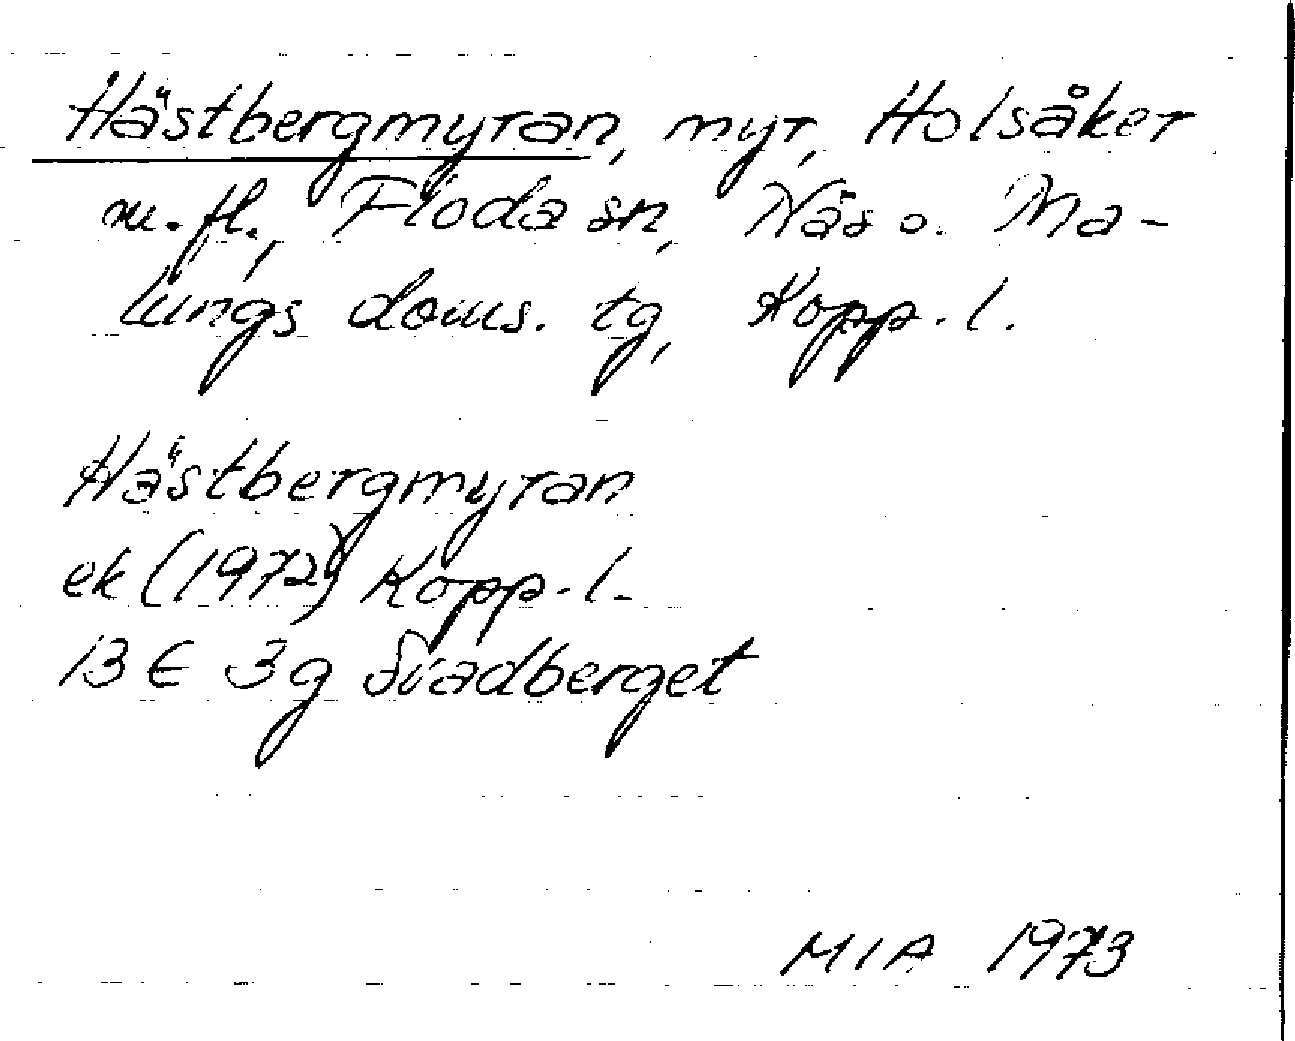 Hästbergmyran, myr, Holsåker
m.fl., Floda sn, Näs o. Ma-
lungs doms. tg, Kopp. l.
Hästbergmyran
ek (1972) Kopp. l.
13 E 3g Svadberget
MIA 1973